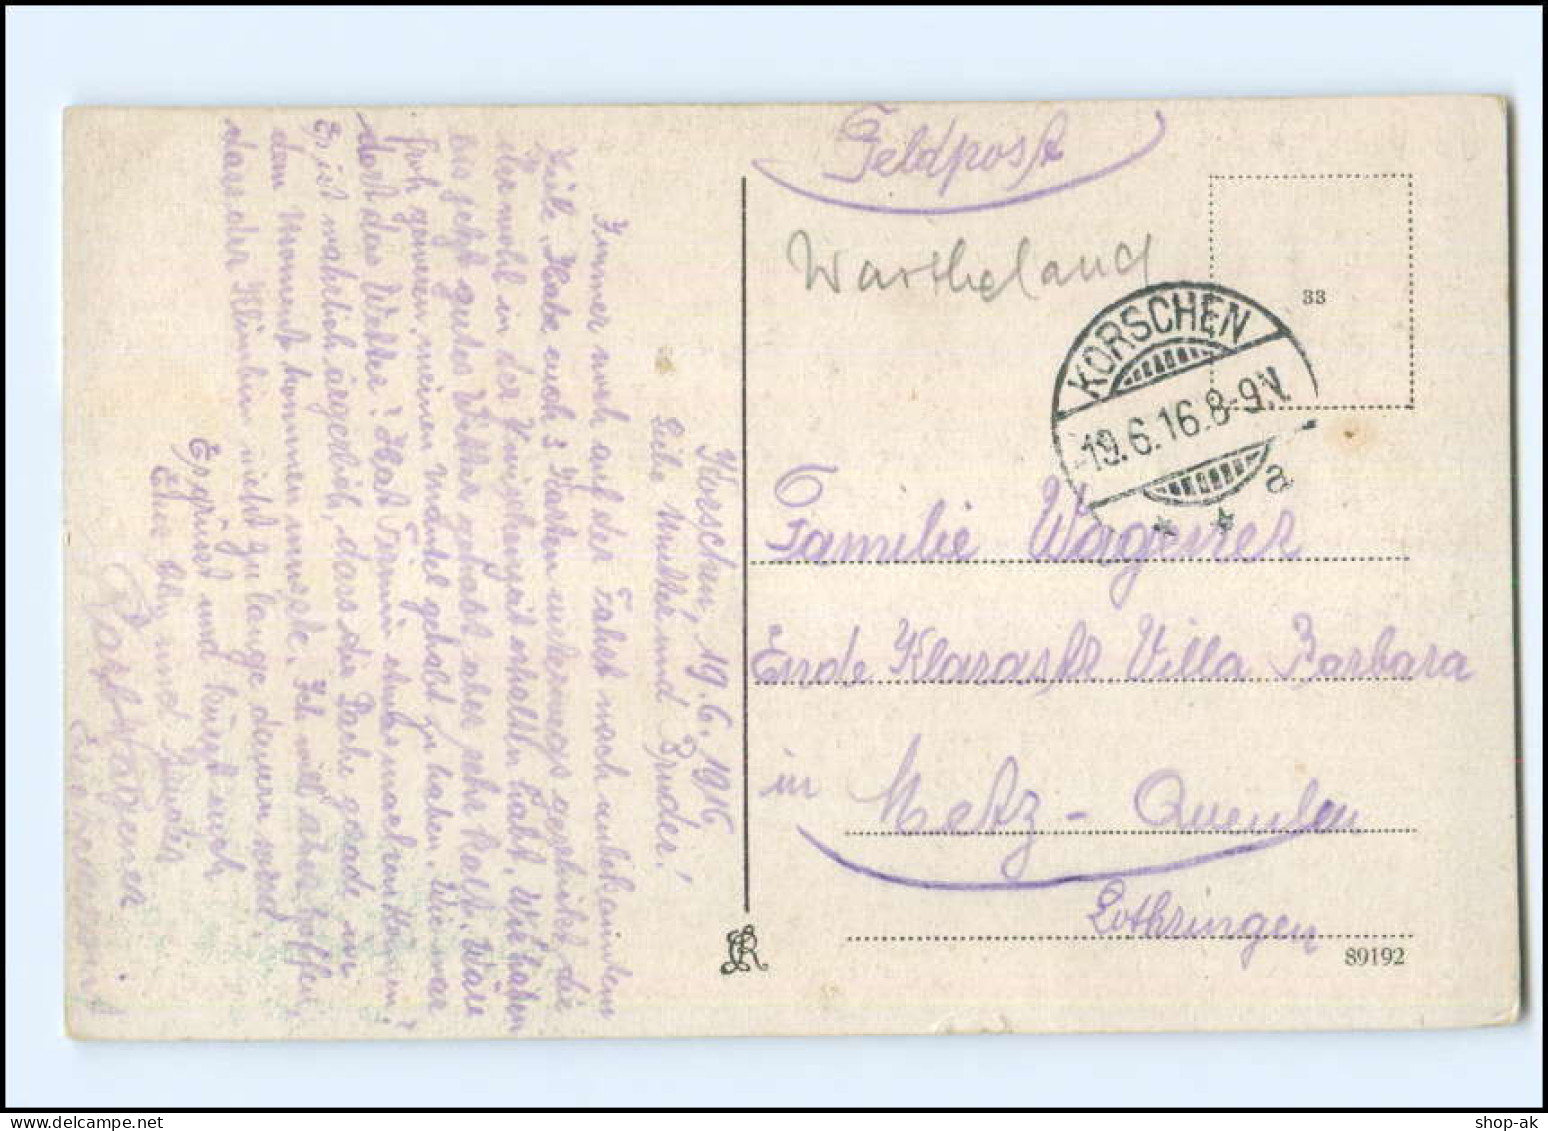 Feldpost
Wartheland
33
KORSCHEN
19.6.16.8-9.V.
* * a
Familie Wagener
Ende Klarastr Villa Barbara
in Metz - Queuleu
Lothringen
89192
Korschen, 19.6.1916
Liebe Mutter und Bruder!
Immer noch auf der Fahrt nach unbekanntem
Ziele. Habe euch 3 Karten unterwegs geschickt, die
ihr wohl in der Zwischenzeit erhalten habt. Wir haben
bis jetzt gutes Wetter gehabt aber sehr kalt. Wäre
froh gewesen, meinen Mantel gehabt zu haben. Wie war
dort das Wetter? Hat
Es ist wahrlich ärgerlich, dass die Sache gerade in
dem Moment kommen musste. Ich will aber hoffen,
dass der nicht zu lange dauern wird.
Es grüsst und küsst euch
Euer und
Wagener
shop-ak